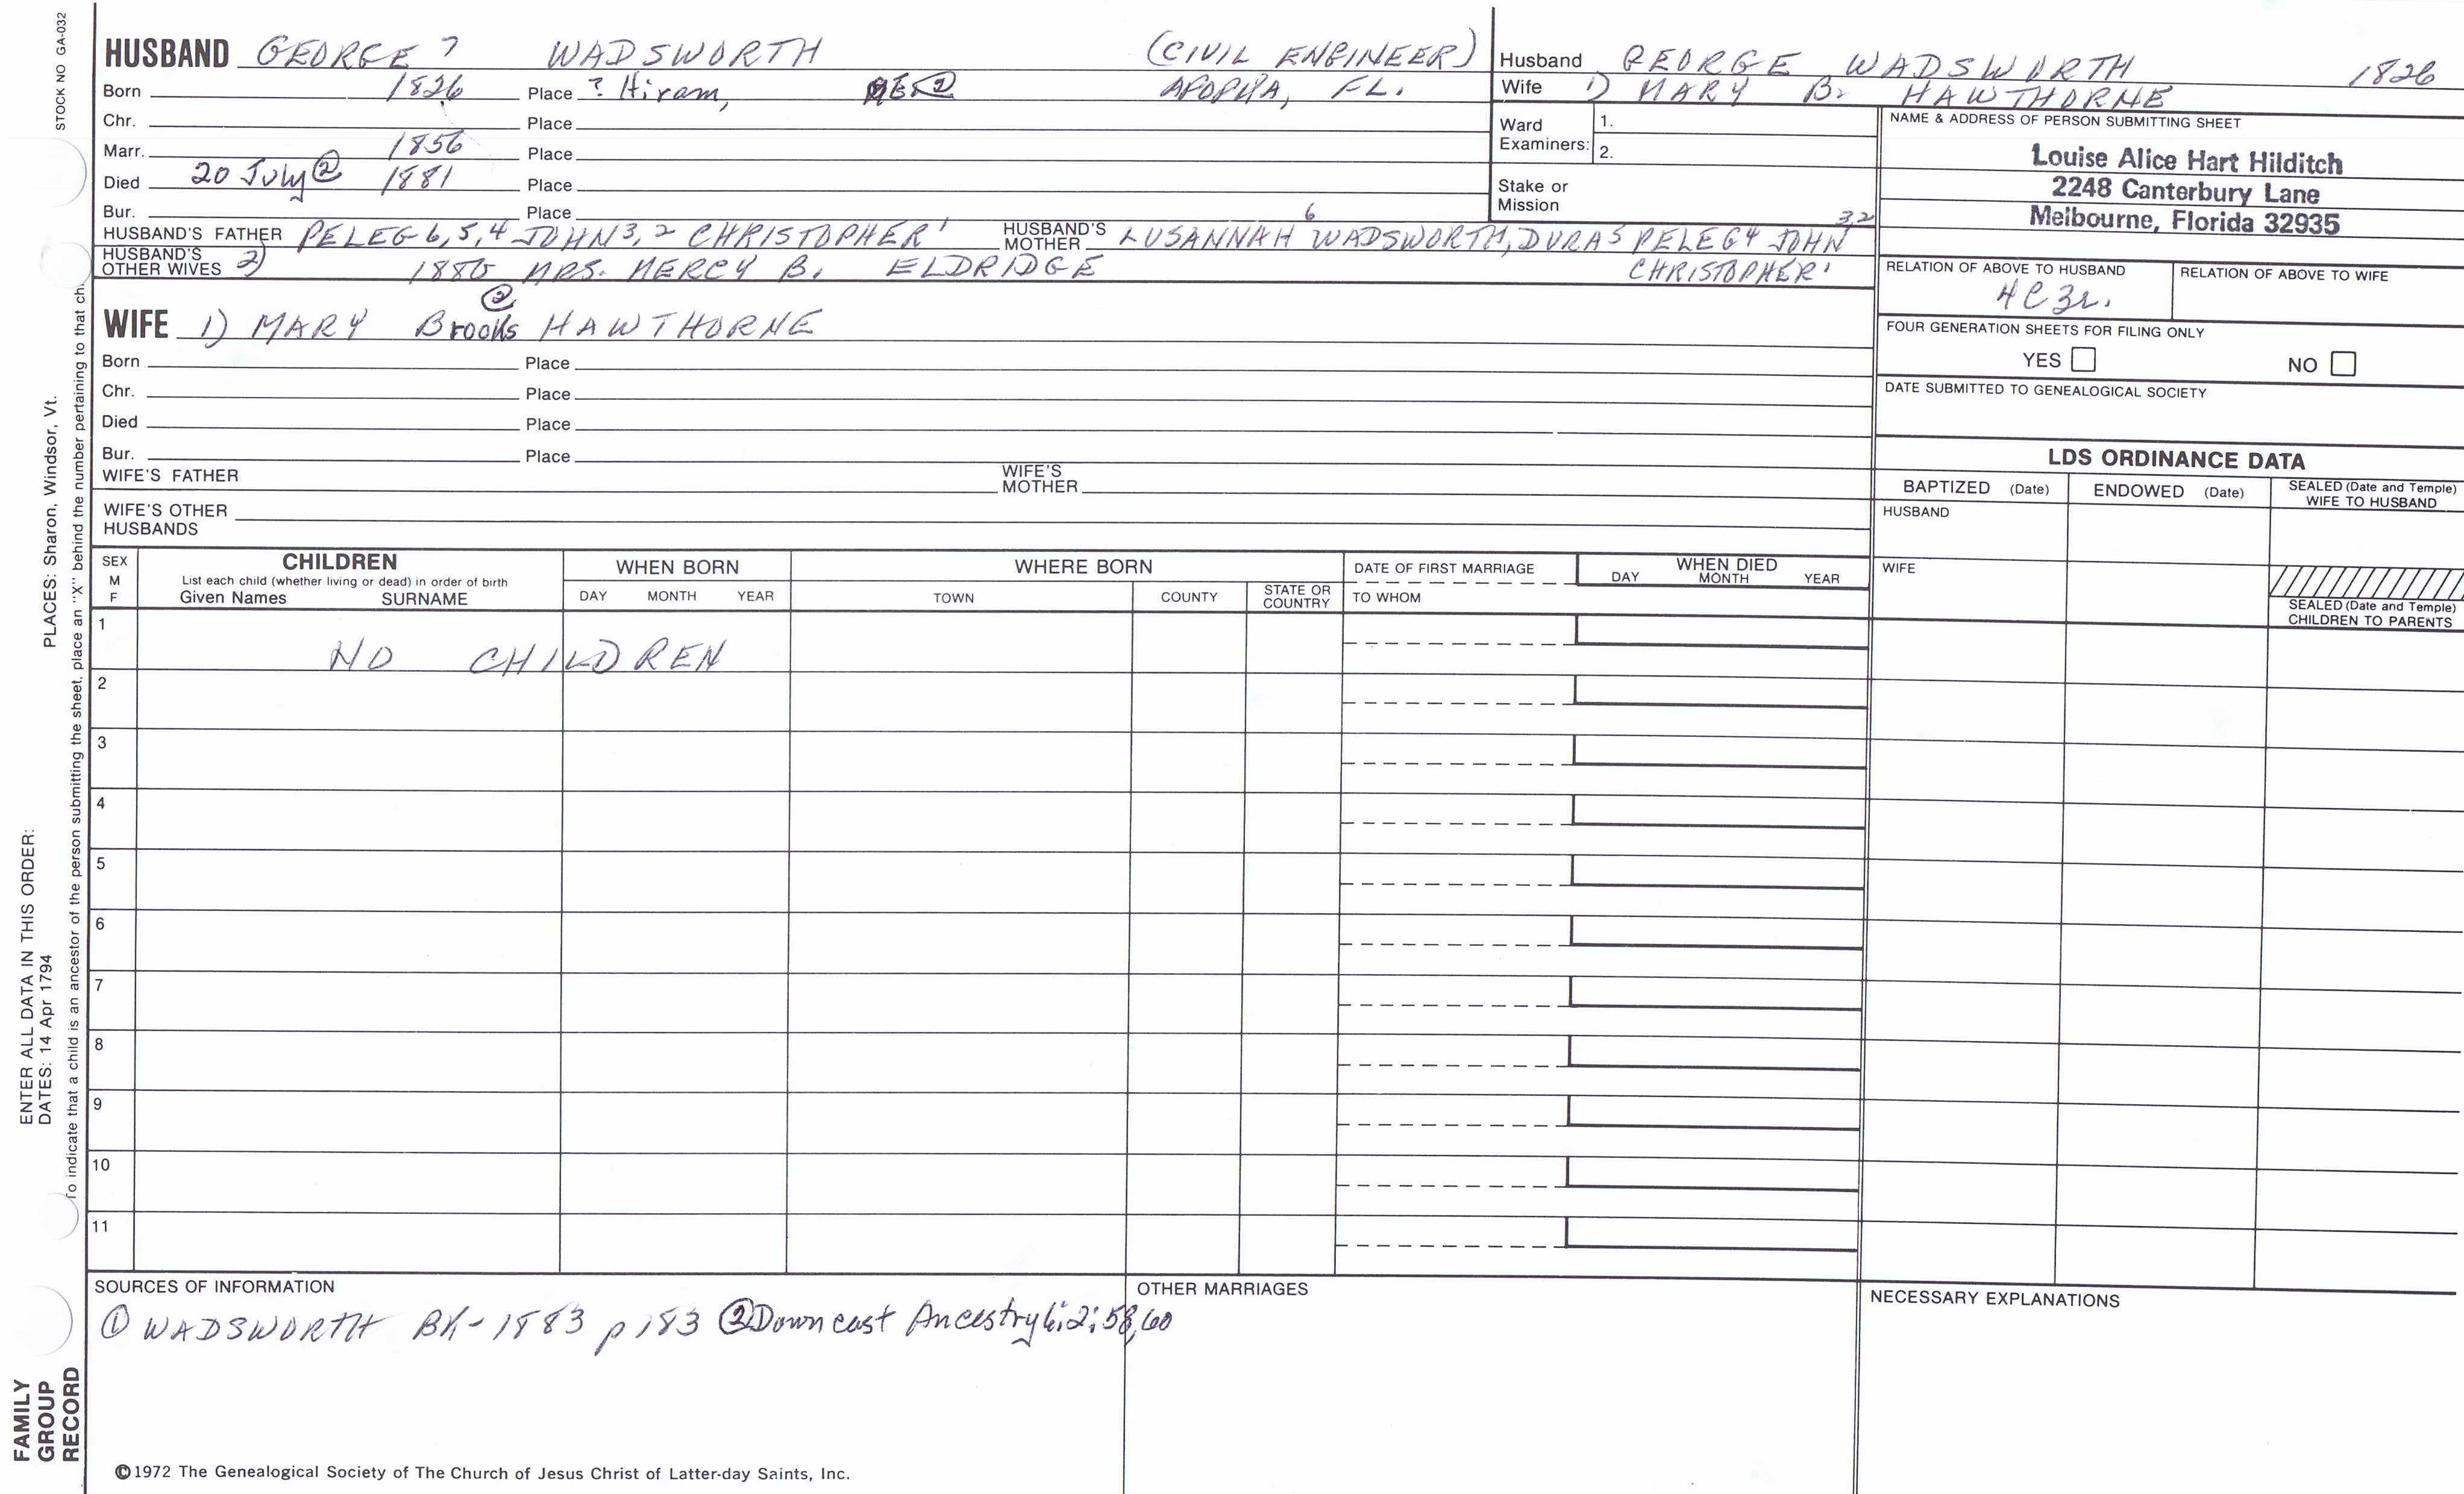 STOCK NO GA-032
HUSBAND GEORGE 7 WADSWORTH (CIVIL ENGINEER)
Born 1826 Place ? Hiram, ② APOPKA, FL.
Chr. Place
Marr. 1856 Place
Died 20 July ② 1881 Place
Bur. Place
HUSBAND'S FATHER PELEG 6, 5, 4 JOHN 3, 2 CHRISTOPHER 1 HUSBAND'S MOTHER LUSANNAH 6 WADSWORTH, DURA 5 PELEG 4 JOHN 3 2 CHRISTOPHER 1
HUSBAND'S OTHER WIVES 2) 1880 MRS. MERCY B. ELDRIDGE
WIFE 1) MARY Brooks ② HAWTHORNE
Born Place
Chr. Place
Died Place
Bur. Place
WIFE'S FATHER WIFE'S MOTHER
WIFE'S OTHER HUSBANDS
Husband GEORGE WADSWORTH 1826
Wife 1) MARY B. HAWTHORNE
Ward Examiners: 1.
2.
Stake or Mission
NAME & ADDRESS OF PERSON SUBMITTING SHEET
Louise Alice Hart Hilditch
2248 Canterbury Lane
Melbourne, Florida 32935
RELATION OF ABOVE TO HUSBAND RELATION OF ABOVE TO WIFE
4C3r.
FOUR GENERATION SHEETS FOR FILING ONLY
YES NO
DATE SUBMITTED TO GENEALOGICAL SOCIETY
LDS ORDINANCE DATA
BAPTIZED (Date) ENDOWED (Date) SEALED (Date and Temple) WIFE TO HUSBAND
HUSBAND
WIFE
SEALED (Date and Temple) CHILDREN TO PARENTS
SEX M F CHILDREN WHEN BORN WHERE BORN DATE OF FIRST MARRIAGE WHEN DIED
List each child (whether living or dead) in order of birth
Given Names SURNAME DAY MONTH YEAR TOWN COUNTY STATE OR COUNTRY TO WHOM DAY MONTH YEAR
1 NO CHILDREN
2
3
4
5
6
7
8
9
10
11
SOURCES OF INFORMATION OTHER MARRIAGES NECESSARY EXPLANATIONS
① WADSWORTH BK-1883 p 183 ② Down east Ancestry 6:2:58,60
©1972 The Genealogical Society of The Church of Jesus Christ of Latter-day Saints, Inc.
FAMILY GROUP RECORD
ENTER ALL DATA IN THIS ORDER:
DATES: 14 Apr 1794 PLACES: Sharon, Windsor, Vt.
To indicate that a child is an ancestor of the person submitting the sheet, place an "X" behind the number pertaining to that ch